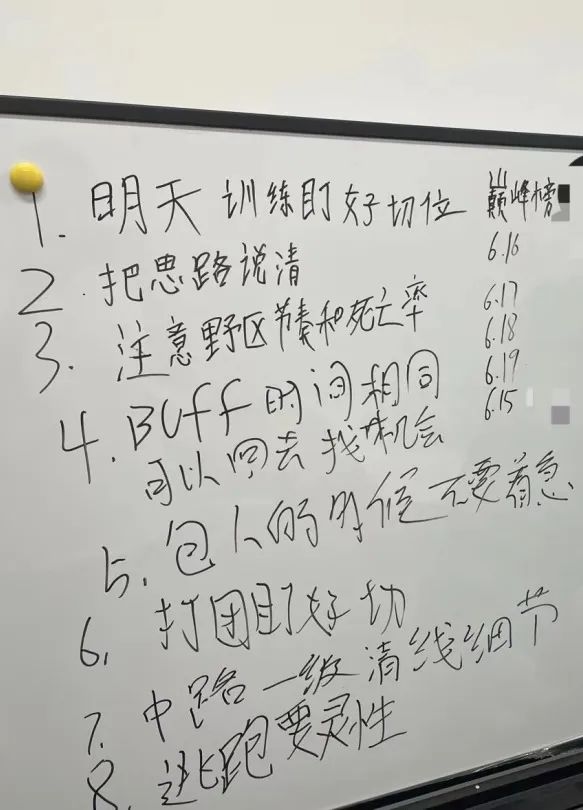 1. 明天训练盯好切位
2. 把思路说清
3. 注意野区节奏和死亡率
4. BUff时间相同
可以回去找机会
5. 包人的时候不要着急
6. 打团盯好切
7. 中路一级清线细节
8. 逃跑要灵性
巅峰榜
6.16
6.17
6.18
6.19
6.15